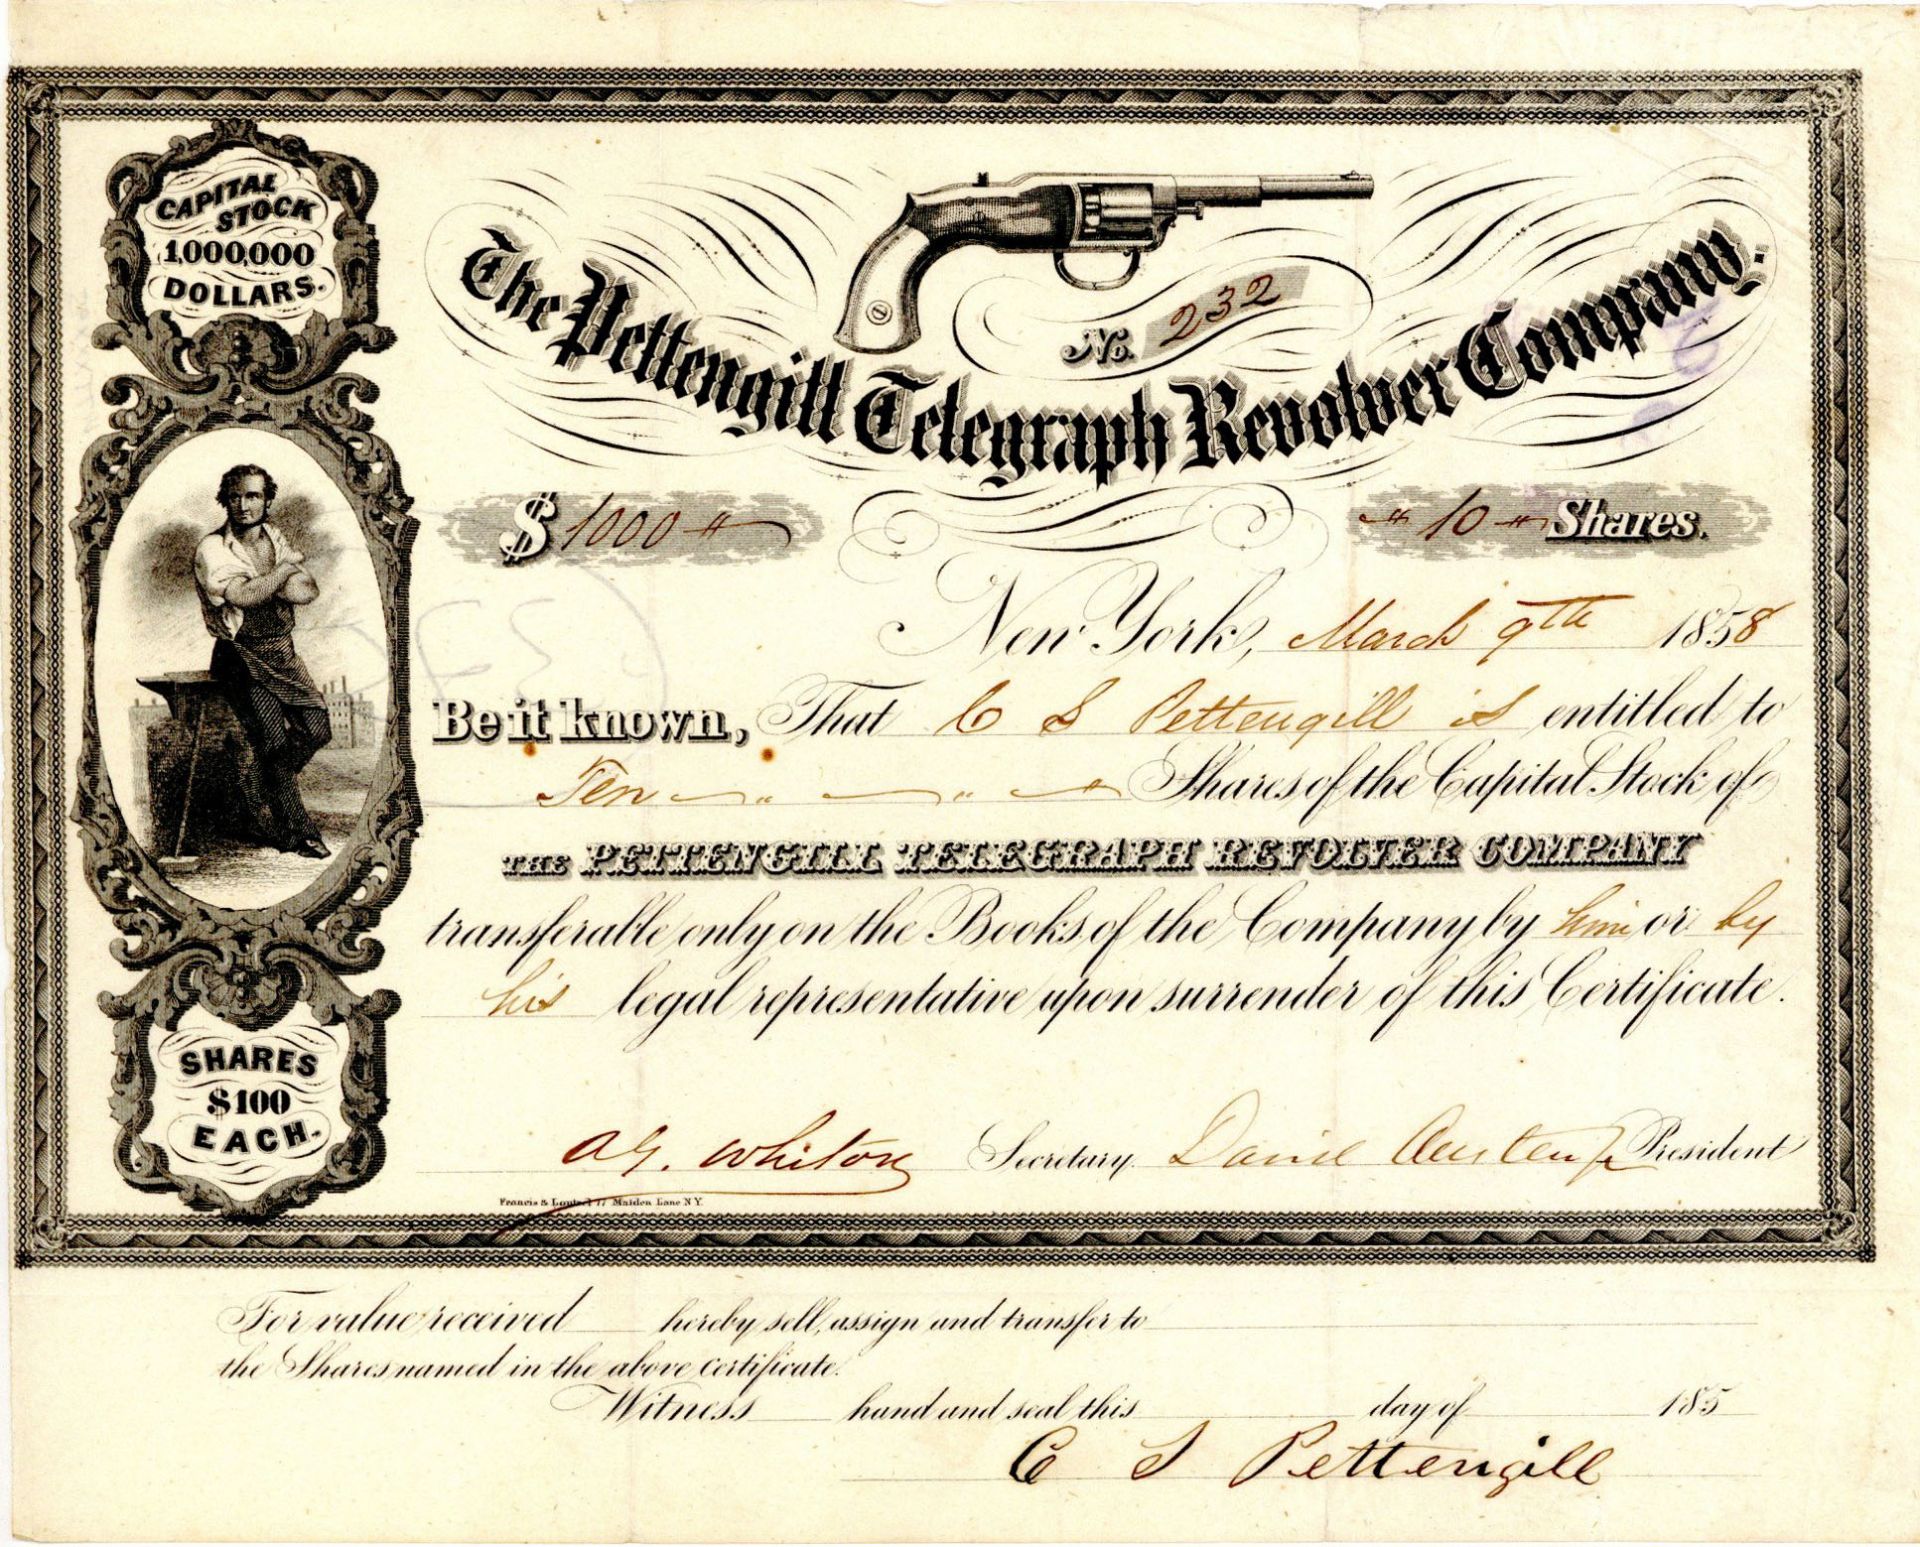 CAPITAL
STOCK
1,000,000
DOLLARS.
The Pettengill Telegraph Revolver Company.
No. 232
$ 1000
10 Shares.
New York, March 9th 1858
Be it known, That C S Pettengill is entitled to
Ten Shares of the Capital Stock of
THE PETTENGILL TELEGRAPH REVOLVER COMPANY
transferable only on the Books of the Company by him or by
his legal representative upon surrender of this Certificate.
SHARES
$100
EACH.
A G. Whiton Secretary. David Austen Jr President
Francis & Loutrel 77 Maiden Lane N Y.
For value received hereby sell, assign and transfer to
the Shares named in the above certificate.
Witness hand and seal this day of 185
C S Pettengill